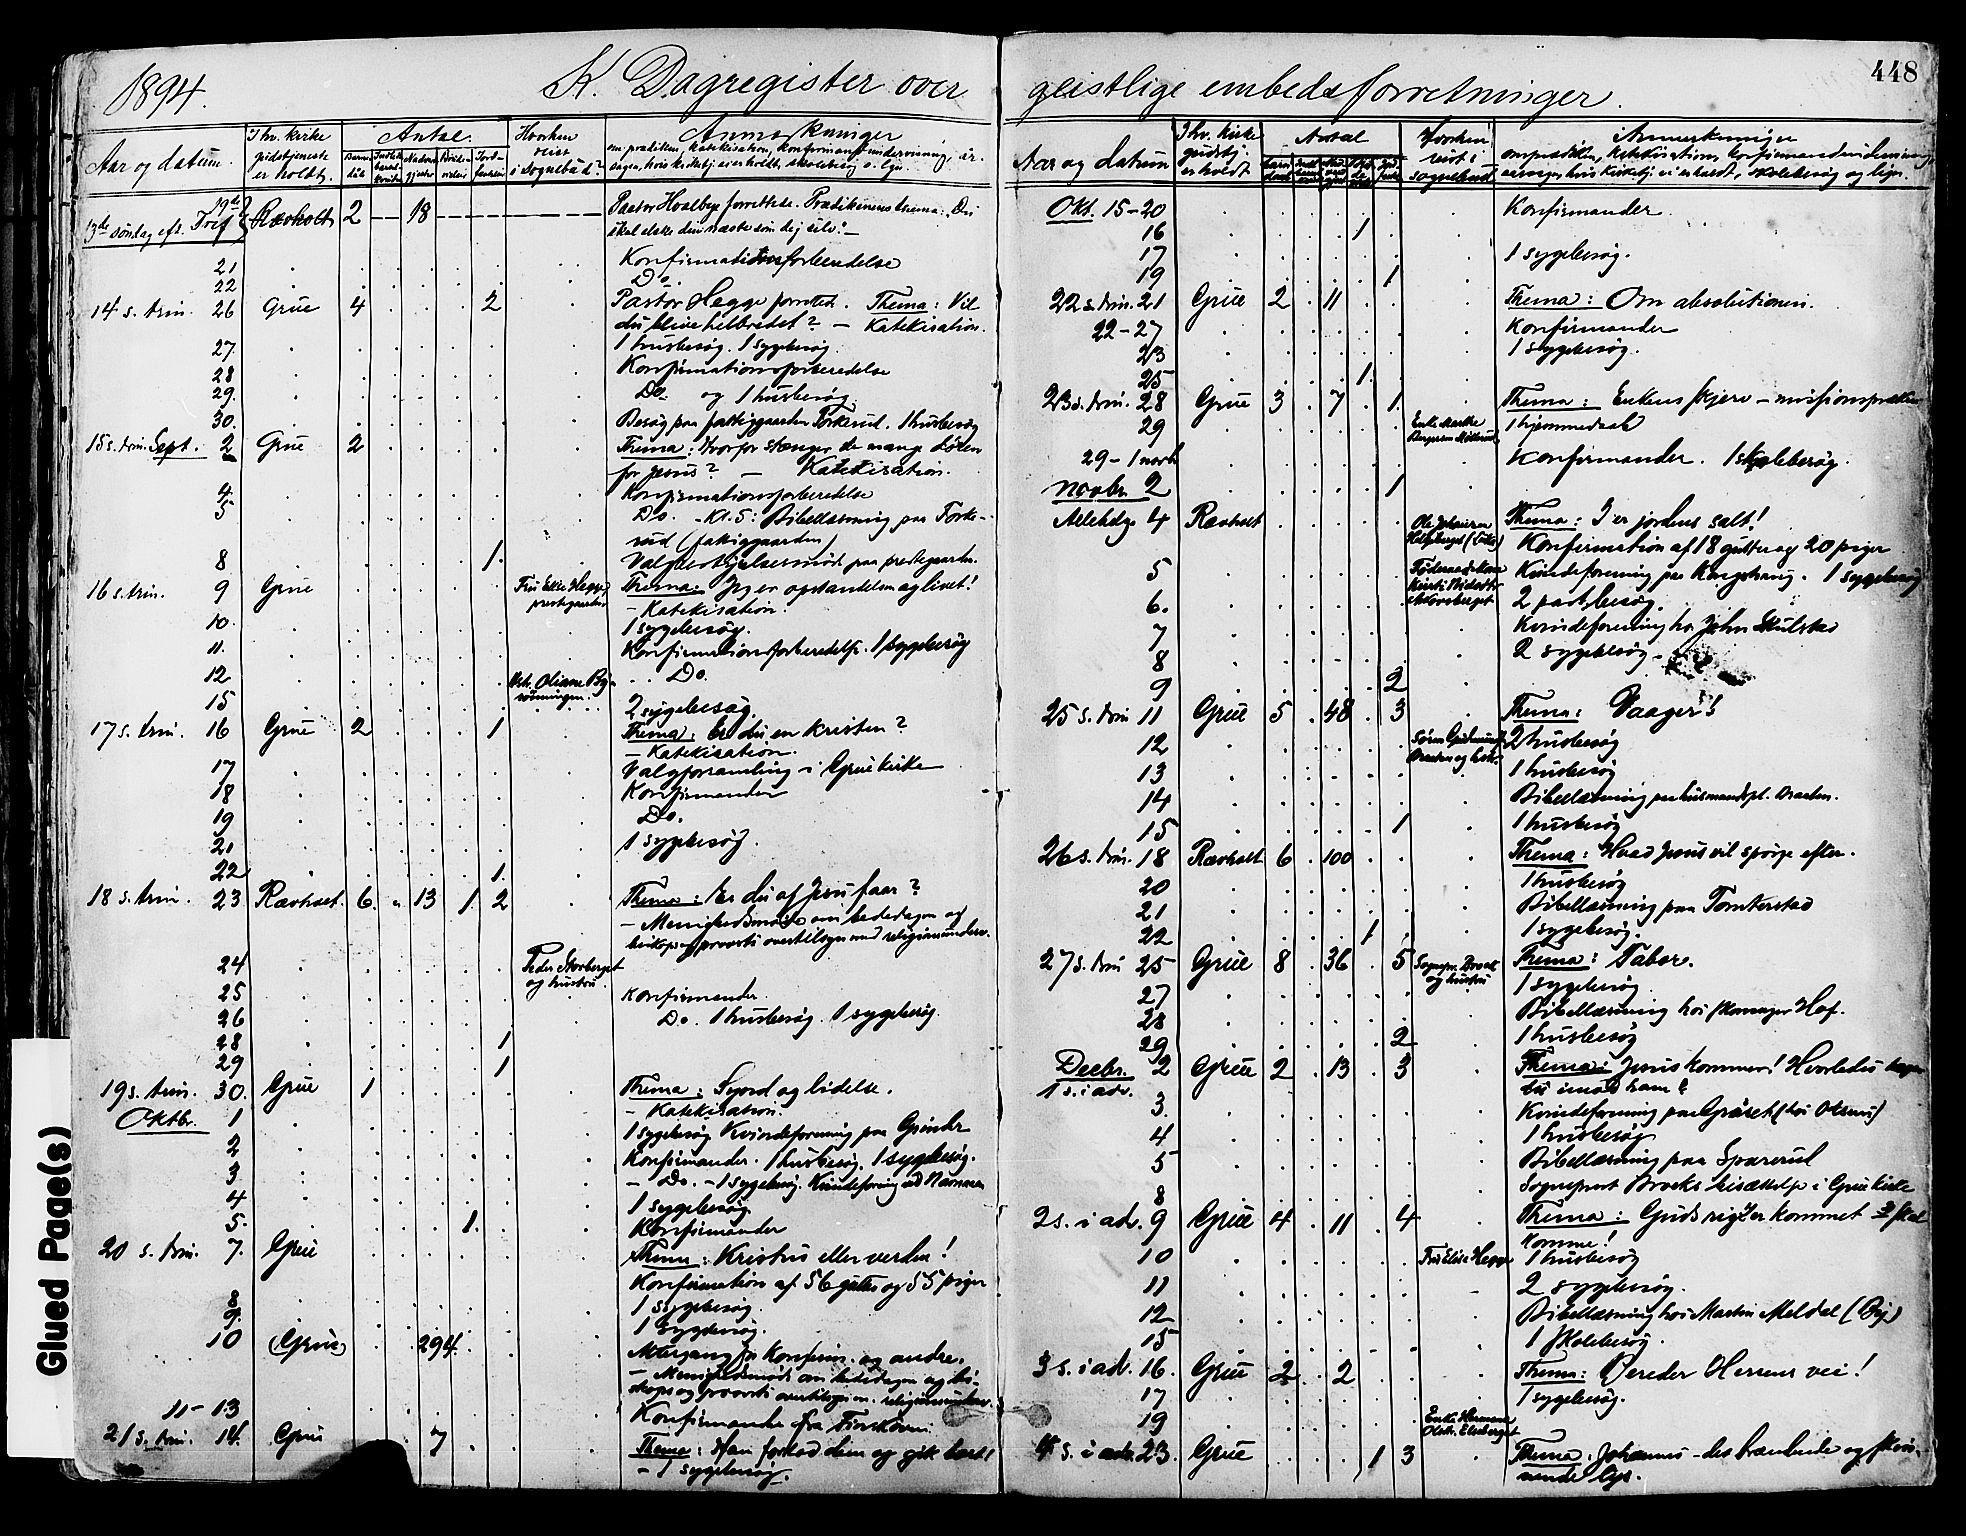 1894. K. Dagregister over
Aar og datum
I hv. kirke gudstjeneste er holdt
Antal
Hvorhen reist i sognebud?
Anmærkninger
om prædiken, katekisation, konfirmandundervisning,
13de søndag eft. Trif 19de Ravholt 2 — 18 — Pastor Hvalbye forrettede. Prædikenens thema: Du
skal elske din næste som dig selv! —
21 Konfirmationsforberedelse
22 Do.
14 s. trin. 26 Grue 4 2 Pastor Hegge forrettet. Thema: Vil
du blive helbredet? — Katekisation.
27. 1 husbesøg. 1 sygebesøg.
28 Konfirmationsforberedelse
29. Do. og 1 husbesøg.
30. Besøg paa fattiggaarden Torkerud. 1 husbesøg
15 s. trin. Sept. 2 Grue 2 Thema: Hvorfor stænger de mange døren
for Jesus? — Katekisation.
4. Konfirmationsforberedelse
5 Do. – Kl. 5: Bibellæsning paa Torke-
rud (fattiggaarden)
8 1. paa prestegaarden.
16 s. trin. 9 Grue Fru Elise Hegge, prestegaarden Thema: Jeg er opstandelsen og livet!
– Katekisation.
10. 1 sygebesøg.
11. Konfirmationsforberedelse. 1 sygebesøg
12 Do.
15 2 sygebesøg.
17 s. trin. 16 Grue 2 1 Thema: Er du en kristen?
– Katekisation.
17 Valgforsamling i Grue kirke
18 Konfirmander
19 Do.
21 1 sygebesøg.
22 1.
18 s. trin. 23 Ravholt. 6. " 13 1 2 Thema: Er du af Jesu faar?
– Menighedsmøde om bededagen og
biskops og provsti overtilsyn med religionsunderv.
24 Peder Storberget og hustru
25 Konfirmander
26 Do. 1 husbesøg. 1 sygebesøg.
28 1
29 1
19 s. trin. 30. Grue 1 Thema: Synd og lidelse.
– Katekisation.
Oktbr. 1 1 sygebesøg Kvindeforening paa Grinder
2 Konfirmander. 1 husbesøg. 1 sygebesøg.
3 – Do. – 1 sygebesøg. Kvindeforening ved Namnaa
4 1 sygebesøg.
5. 1. Konfirmander
20 s. trin. 7. Grue Thema: Kristus eller verden!
Konfirmation af 56 gutter og 55 piger
8 1 sygebesøg.
9. 1 sygebesøg.
10 (Grue) 294. Altergang for konfirm. og andre.
– Menighedsmøde om bededagen og bi-
skops og provsti overtilsyn m. religionsunderv.
11–13 Konfirmander fra Finskoven.
21 s. trin. 14. Grue 7 Thema: Han forlod dem og gik bort!
– 1 sygebesøg.
Glued Page(s)
448
geistlige embedsforretninger.
Aar og datum
I hv. kirke gudstj. er holdt
Antal
Hvorhen reist i sognebud
Anmærkninger
Okt. 15–20 Konfirmander
16 1
17 1 sygebesøg.
19 1
22 s. trin. 21 Grue 2 11 Thema: Om absolutionen.
22–27 Konfirmander
23 1 sygebesøg.
25 1
23 s. trin. 28 Grue 3 7 1. Thema: Enkens skjerv – missionsprædiken
29 1 hjemmedaab
29–1 novb Konfirmander. 1 skolebesøg.
Novbr. 2 1
Allehelg. 4 Ravholt Thema: I er jordens salt!
Konfirmation af 18 gutter og 20 piger
5 Kvindeforening paa Kongshaug. 1 sygebesøg
6. 2 besøg.
7 Kvindeforening hos John Skulstad
8 2 sygebesøg
9 2
25 s. trin 11 Grue 5 48 3 Thema: Vaager!
12 2 husbesøg
13 1 husbesøg
14 Bibellæsning paa husmandspl. Braaten.
15 1 1 husbesøg
26 s. trin. 18 Ravholt 6 100 Thema: Hvad Jesus vil spørge efter.
20 1 husbesøg
21 Bibellæsning paa Tomterstad
22 1 1 sygebesøg.
27 s. trin 25 Grue 8 36 5 Sognepr. Brock og hustru Thema: Tabor.
27 1 sygebesøg
28 Bibellæsning hos skomager Hof.
29 2 1 husbesøg
Decbr. 2 Grue 2 13 3 Thema: Jesus kommer! Hvorledes tager
1 s. i adv. du imod ham?
3. Kvindeforening paa Grøset (hos Olsens)
4 1 husbesøg
5 Bibellæsning paa Sparerud
8 Sogneprest Brocks bisættelse i Grue kirke
2 s. i adv. 9 Grue 4 11 4 Thema: Guds rige er kommet & skal
komme!
10 Fru Elise Hegge 1 husbesøg
11 2 sygebesøg.
12 Bibellæsning hos Martin Meldal (By)
15 1 skolebesøg.
3 s. i adv. 16. Grue 2 2 Thema: Bereder Herrens vei!
17 1 sygebesøg.
19
4 s. i adv. 23. Grue 1 3 Thema: Johannes – det brændende og skin-
nende lys.